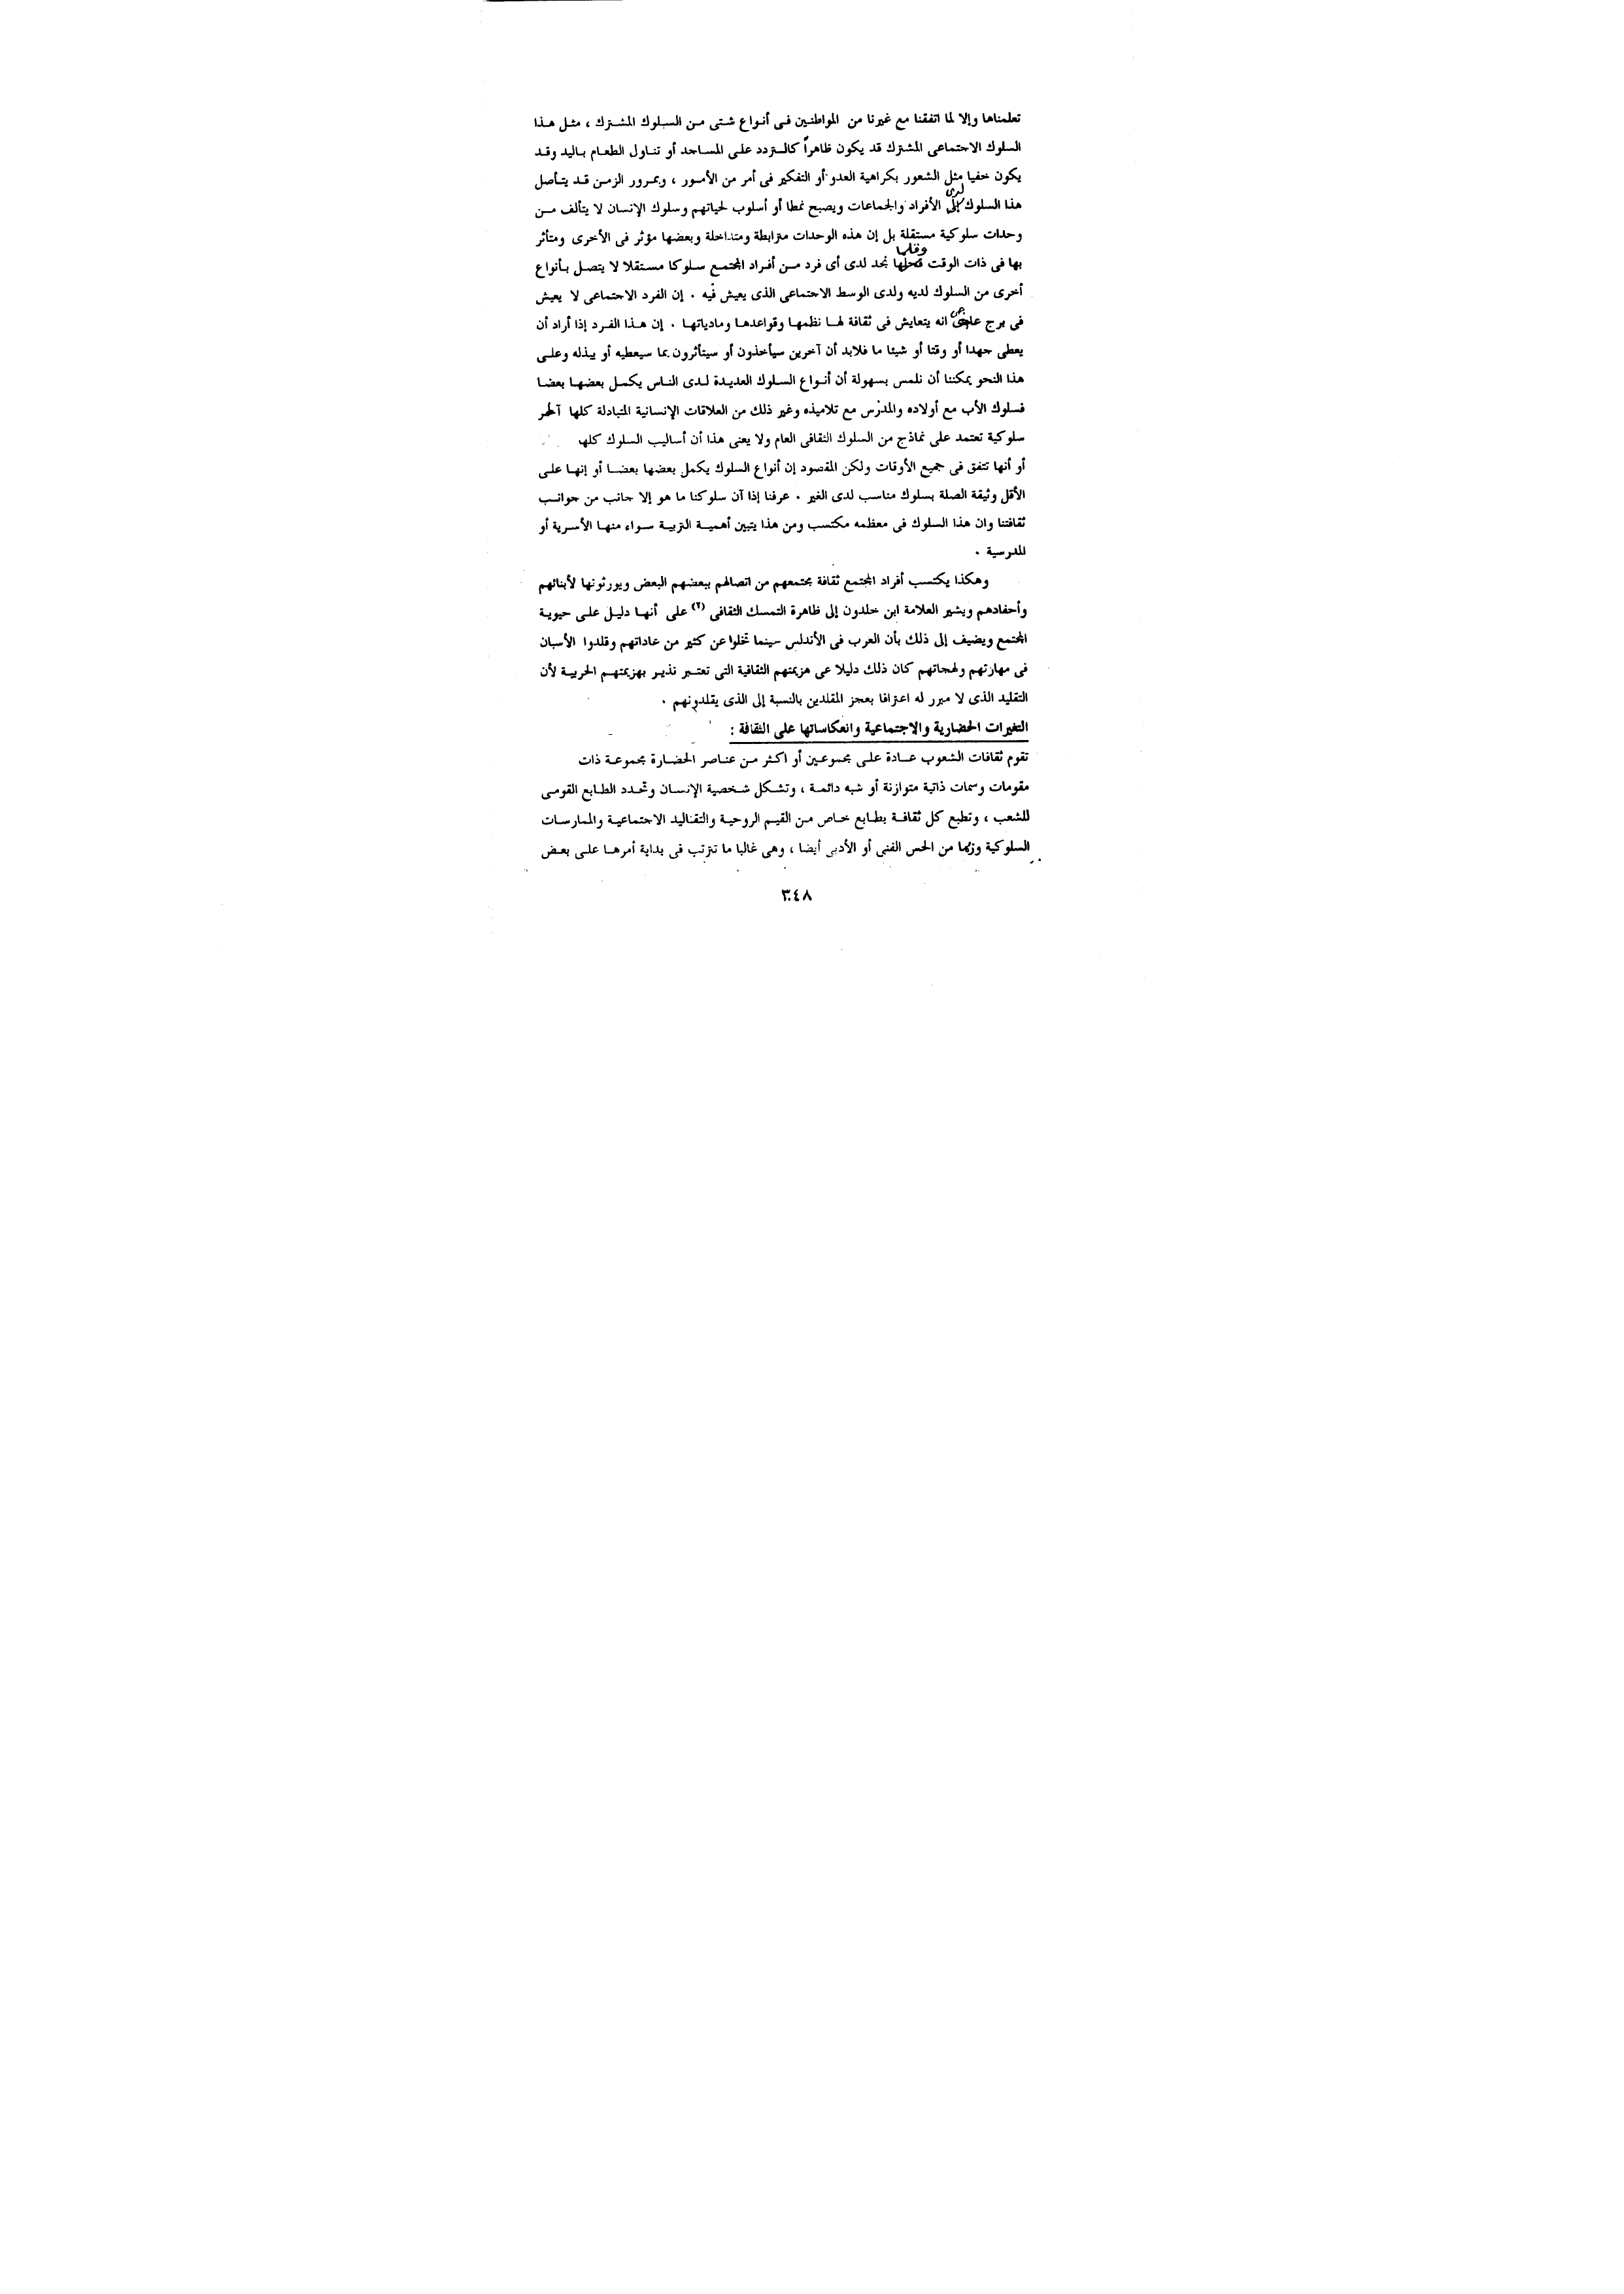 تعلمناها وإلا لما اتفقنا مع غيرنا من المواطنين فى أنواع شتى من السلوك المشترك ، مثل هذا
السلوك الاجتماعى المشترك قد يكون ظاهراً كالتردد على المساجد أو تناول الطعام باليد وقد
يكون خفيا مثل الشعور بكراهية العدو أو التفكير فى أمر من الأمور ، وبمرور الزمن قد يتأصل
هذا السلوك لدى الأفراد والجماعات ويصبح نمطا أو أسلوب لحياتهم وسلوك الإنسان لا يتألف من
وحدات سلوكية مستقلة بل إن هذه الوحدات مترابطة ومتداخلة وبعضها مؤثر فى الأخرى ومتأثر
بها فى ذات الوقت وقلما نجد لدى أى فرد من أفراد المجتمع سلوكا مستقلا لا يتصل بأنواع
أخرى من السلوك لديه ولدى الوسط الاجتماعى الذى يعيش فيه . إن الفرد الاجتماعى لا يعيش
فى برج عاجى انه يتعايش فى ثقافة لها نظمها وقواعدها ومادياتها . إن هذا الفرد إذا أراد أن
يعطى جهدا أو وقتا أو شيئا ما فلابد أن آخرين سيأخذون أو سيتأثرون بما سيعطيه أو يبذله وعلى
هذا النحو يمكننا أن نلمس بسهولة أن أنواع السلوك العديدة لدى الناس يكمل بعضها بعضا
فسلوك الأب مع أولاده والمدرس مع تلاميذه وغير ذلك من العلاقات الإنسانية المتبادلة كلها
سلوكية تعتمد على نماذج من السلوك الثقافى العام ولا يعنى هذا أن أساليب السلوك كلها
أو أنها تتفق فى جميع الأوقات ولكن المقصود إن أنواع السلوك يكمل بعضها بعضا أو إنها على
الأقل وثيقة الصلة بسلوك مناسب لدى الغير . عرفنا إذا آن سلوكنا ما هو إلا جانب من جوانب
ثقافتنا وان هذا السلوك فى معظمه مكتسب ومن هذا يتبين أهمية التربية سواء منها الأسرية أو
المدرسية .
وهكذا يكتسب أفراد المجتمع ثقافة مجتمعهم من اتصالهم ببعضهم البعض ويورثونها لأبنائهم
وأحفادهم ويشير العلامة ابن خلدون إلى ظاهرة التمسك الثقافى (٢) على أنها دليل على حيوية
المجتمع ويضيف إلى ذلك بأن العرب فى الأندلس سينما تخلوا عن كثير من عاداتهم وقلدوا الأسبان
فى مهارتهم ولهجاتهم كان ذلك دليلا عى هزيمتهم الثقافية التى تعتبر نذير بهزيمتهم الحربية لأن
التقليد الذى لا مبرر له اعترافا بعجز المقلدين بالنسبة إلى الذى يقلدونهم .
التغيرات الحضارية والاجتماعية وانعكاساتها على الثقافة :
تقوم ثقافات الشعوب عادة على مجموعين أو اكثر من عناصر الحضارة مجموعة ذات
مقومات وسمات ذاتية متوازنة أو شبه دائمة ، وتشكل شخصية الإنسان وتحدد الطابع القومى
للشعب ، وتطبع كل ثقافة بطابع خاص من القيم الروحية والتقاليد الاجتماعية والممارسات
السلوكية وربما من الحس الفنى أو الأدبى أيضا ، وهى غالبا ما تترتب فى بداية أمرها على بعض
٣٤٨